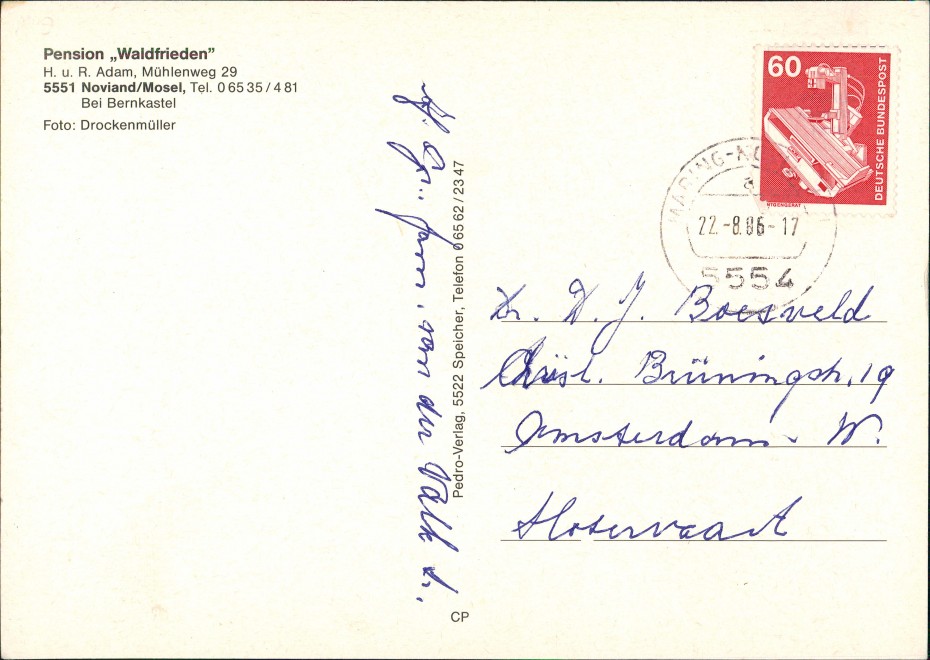 Pension „Waldfrieden”
H. u. R. Adam, Mühlenweg 29
5551 Noviand/Mosel, Tel. 0 65 35 / 4 81
Bei Bernkastel
Foto: Drockenmüller
60
DEUTSCHE BUNDESPOST
MARING-NO
a
22.-8.86-17
5554
Pedro-Verlag, 5522 Speicher, Telefon 0 65 62 / 23 47
H. Gr. fam. van der Valk
D. J. Boesveld
Brüningstr. 19
Amsterdam - W.
Slotervaart
CP